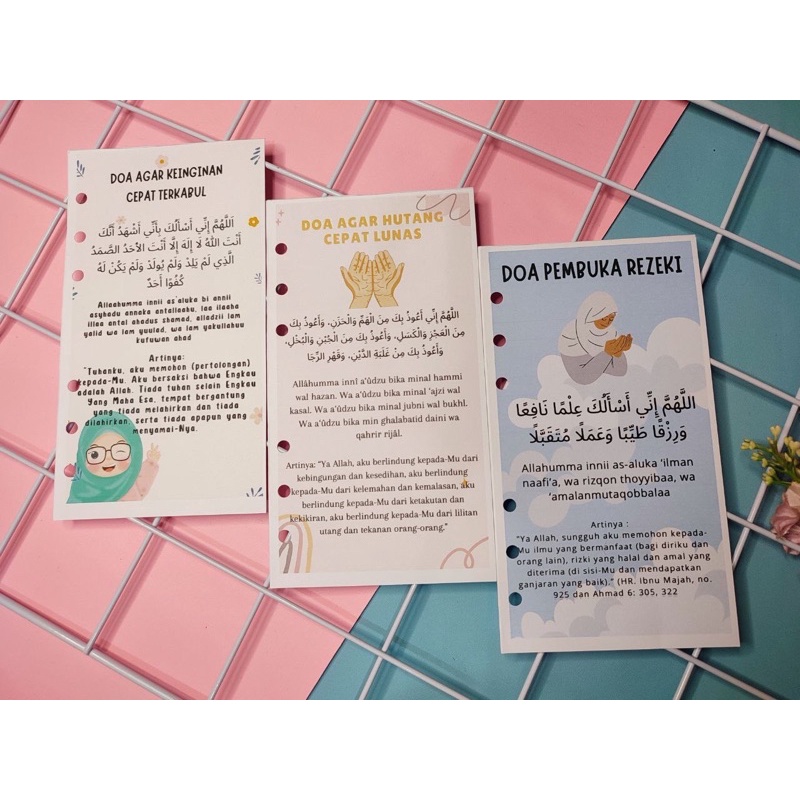 DOA AGAR KEINGINAN
CEPAT TERKABUL
اَللّٰهُمَّ إِنِّي أَسْأَلُكَ بِأَنِّي أَشْهَدُ أَنَّكَ
أَنْتَ اللّٰهُ لَا إِلَهَ إِلَّا أَنْتَ الأَحَدُ الصَّمَدُ
الَّذِي لَمْ يَلِدْ وَلَمْ يُولَدْ وَلَمْ يَكُنْ لَهُ
كُفُوًا أَحَدٌ
Allaahumma innii as'aluka bi annii
asyhadu annaka antallaahu, laa ilaaha
illaa antal ahadus shamad, alladzii lam
yalid wa lam yuulad, wa lam yakullahuu
kufuwan ahad
Artinya:
"Tuhanku, aku memohon (pertolongan)
kepada-Mu. Aku bersaksi bahwa Engkau
adalah Allah. Tiada tuhan selain Engkau
Yang Maha Esa, tempat bergantung
yang tiada melahirkan dan tiada
dilahirkan, serta tiada apapun yang
menyamai-Nya.
DOA AGAR HUTANG
CEPAT LUNAS
اللَّهُمَّ إِنِّي أَعُوذُ بِكَ مِنَ الْهَمِّ وَالْحَزَنِ، وَأَعُوذُ بِكَ
مِنَ الْعَجْزِ وَالْكَسَلِ، وَأَعُوذُ بِكَ مِنَ الْجُبْنِ وَالْبُخْلِ،
وَأَعُوذُ بِكَ مِنْ غَلَبَةِ الدَّيْنِ، وَقَهْرِ الرِّجَا
Allâhumma innî a'ûdzu bika minal hammi
wal hazan. Wa a'ûdzu bika minal 'ajzi wal
kasal. Wa a'ûdzu bika minal jubni wal bukhl.
Wa a'ûdzu bika min ghalabatid daini wa
qahrir rijâl.
Artinya: "Ya Allah, aku berlindung kepada-Mu dari
kebingungan dan kesedihan, aku berlindung
kepada-Mu dari kelemahan dan kemalasan, aku
berlindung kepada-Mu dari ketakutan dan
kekikiran, aku berlindung kepada-Mu dari lilitan
utang dan tekanan orang-orang."
DOA PEMBUKA REZEKI
اللَّهُمَّ إِنِّي أَسْأَلُكَ عِلْمًا نَافِعًا
وَرِزْقًا طَيِّبًا وَعَمَلًا مُتَقَبَّلًا
Allahumma innii as-aluka 'ilman
naafi'a, wa rizqon thoyyibaa, wa
'amalanmutaqobbalaa
Artinya :
"Ya Allah, sungguh aku memohon kepada-
Mu ilmu yang bermanfaat (bagi diriku dan
orang lain), rizki yang halal dan amal yang
diterima (di sisi-Mu dan mendapatkan
ganjaran yang baik)." (HR. Ibnu Majah, no.
925 dan Ahmad 6: 305, 322